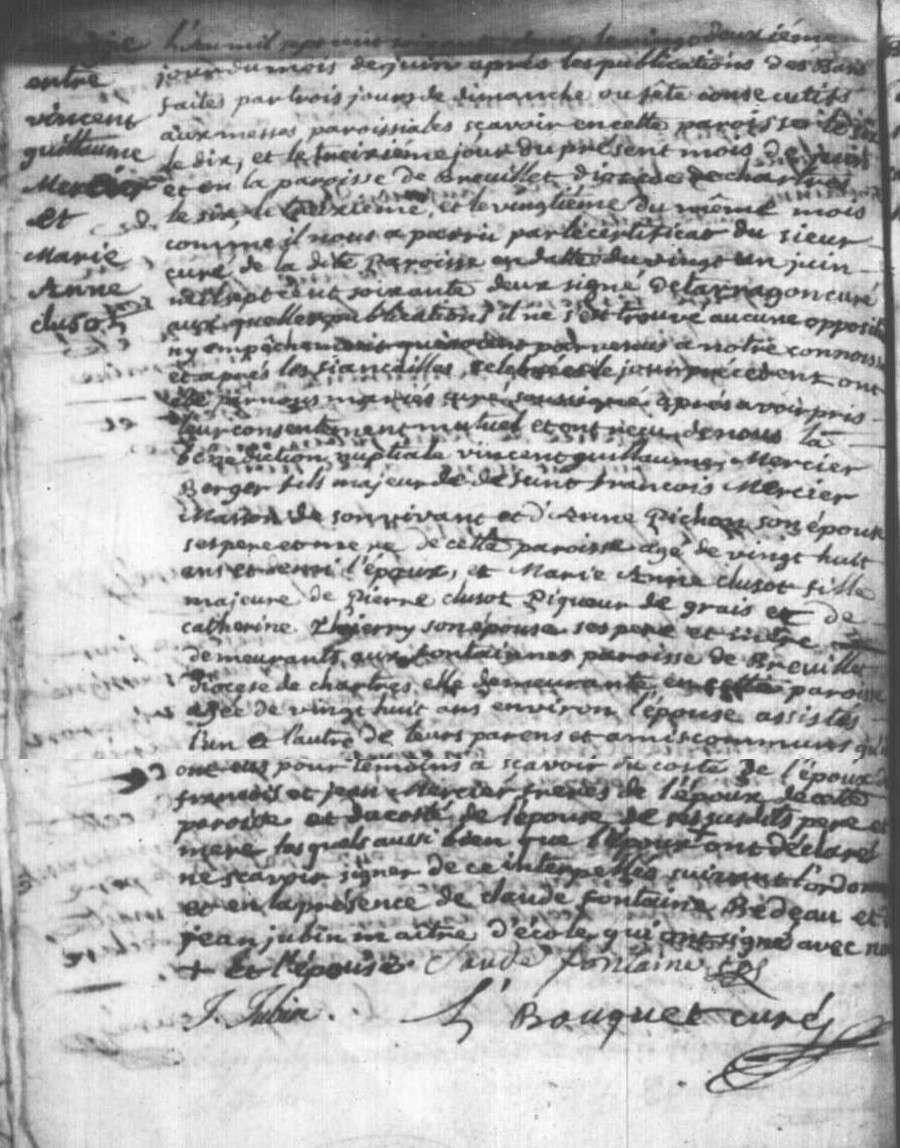 entre
vincent
guillaume
Mercier
et
Marie
Anne
clusot
L'an mil sept cent soixante deux le vingt deuxiéme
jour du mois de juin aprés les publications des Bans
faites par trois jours de dimanche ou fête consecutifs
aux messes paroissiales scavoir en cette paroisse le six
le dix, et le treiziéme jour du présent mois de juin
et en la paroisse de Breuillet diocese de chartres
le six, le treizieme, et le vingtiéme du même mois
comme il nous a parru par le certificat du sieur
curé de la dite paroisse en datte du vingt un juin
mil sept cent soixante deux signé Delarragon curé
aux quelles publications il ne s'est trouvé aucune opposi
ny empêchement parvenus a notre connoiss
et aprés les fiancailles celebrées le jour precedent ont
été par nous mariés curé soussigné aprés avoir pris
leur consentement mutuel et ont recu de nous la
benediction nuptiale vincent guillaume Mercier
Berger fils majeur de defunt francois Mercier
Masson de son vivant et d'Anne Pichon son épouse
ses pere et mere de cette paroisse agé de vingt huit
ans et demi l'époux, et Marie Anne clusot fille
majeure de Pierre clusot Piqueur de grais et de
catherine Thierry son épouse ses pere et mere
demeurants aux fontaines paroisse de Breuille
diocese de chartres elle demeurante en cette paroisse
agée de vingt huit ans environ l'épouse assistés
l'un et l'autre de leurs parens et amis communs qu'
ont eus pour temoins a scavoir du costé de l'époux
francois et jean Mercier freres de l'époux de cette
paroisse et du costé de l'épouse de ses susdits pere et
mere lesquels aussi bien que l'époux + ont déclaré
ne scavoir signer de ce interpellés suivant l'ordonn
et en la présence de claude fontaine Bedeau et
jean jubin maître d'école qui ont signé avec no
+ et l'épouse claude fontaine
J. Jubin. Bouquet curé